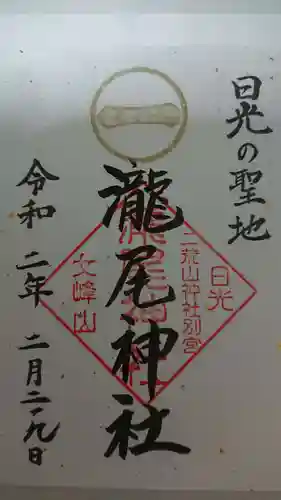 日光の聖地
一
瀧尾神社
日光
二荒山神社別宮
瀧尾神社
女峰山
令和二年二月二十九日